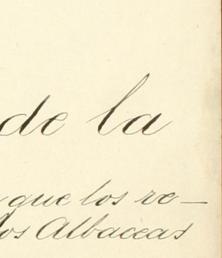 de la
que los re-
los Albaceas